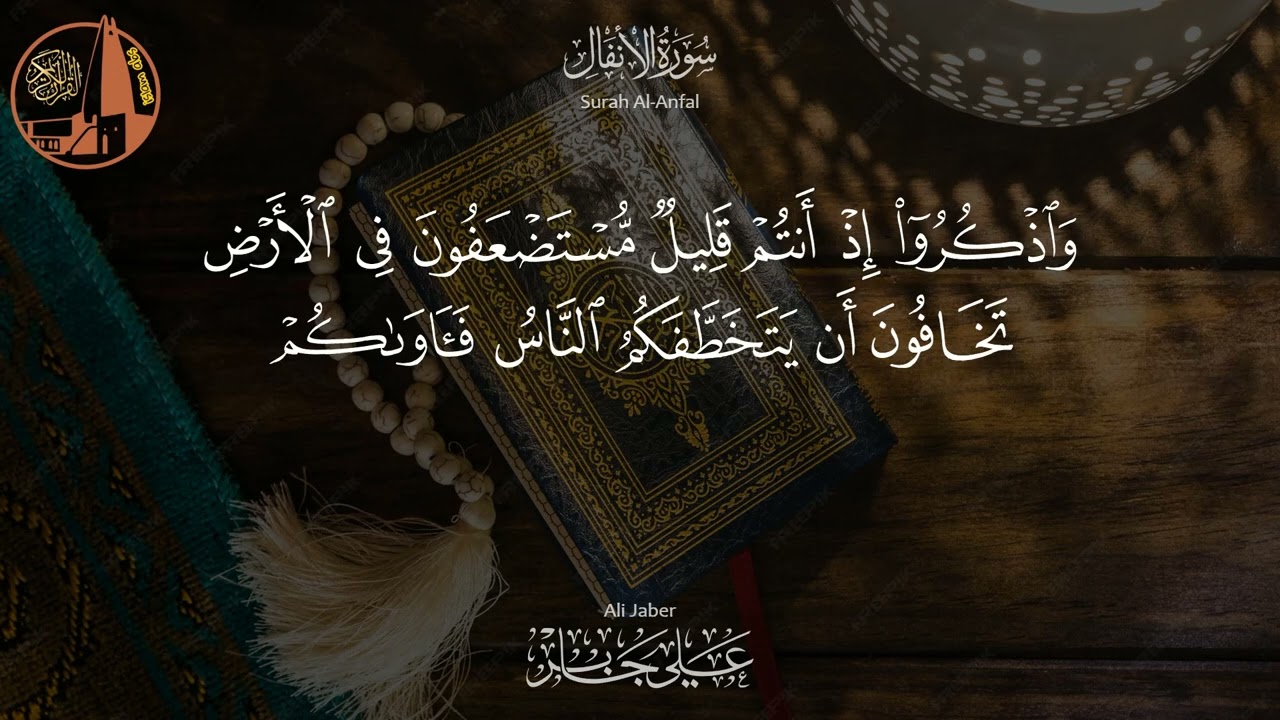 سُورَةُ الأَنفَالِ
Surah Al-Anfal
وَٱذۡكُرُوٓاْ إِذۡ أَنتُمۡ قَلِيلٞ مُّسۡتَضۡعَفُونَ فِي ٱلۡأَرۡضِ
تَخَافُونَ أَن يَتَخَطَّفَكُمُ ٱلنَّاسُ فَـَٔاوَىٰكُمۡ
Ali Jaber
عَلِي جَابِر